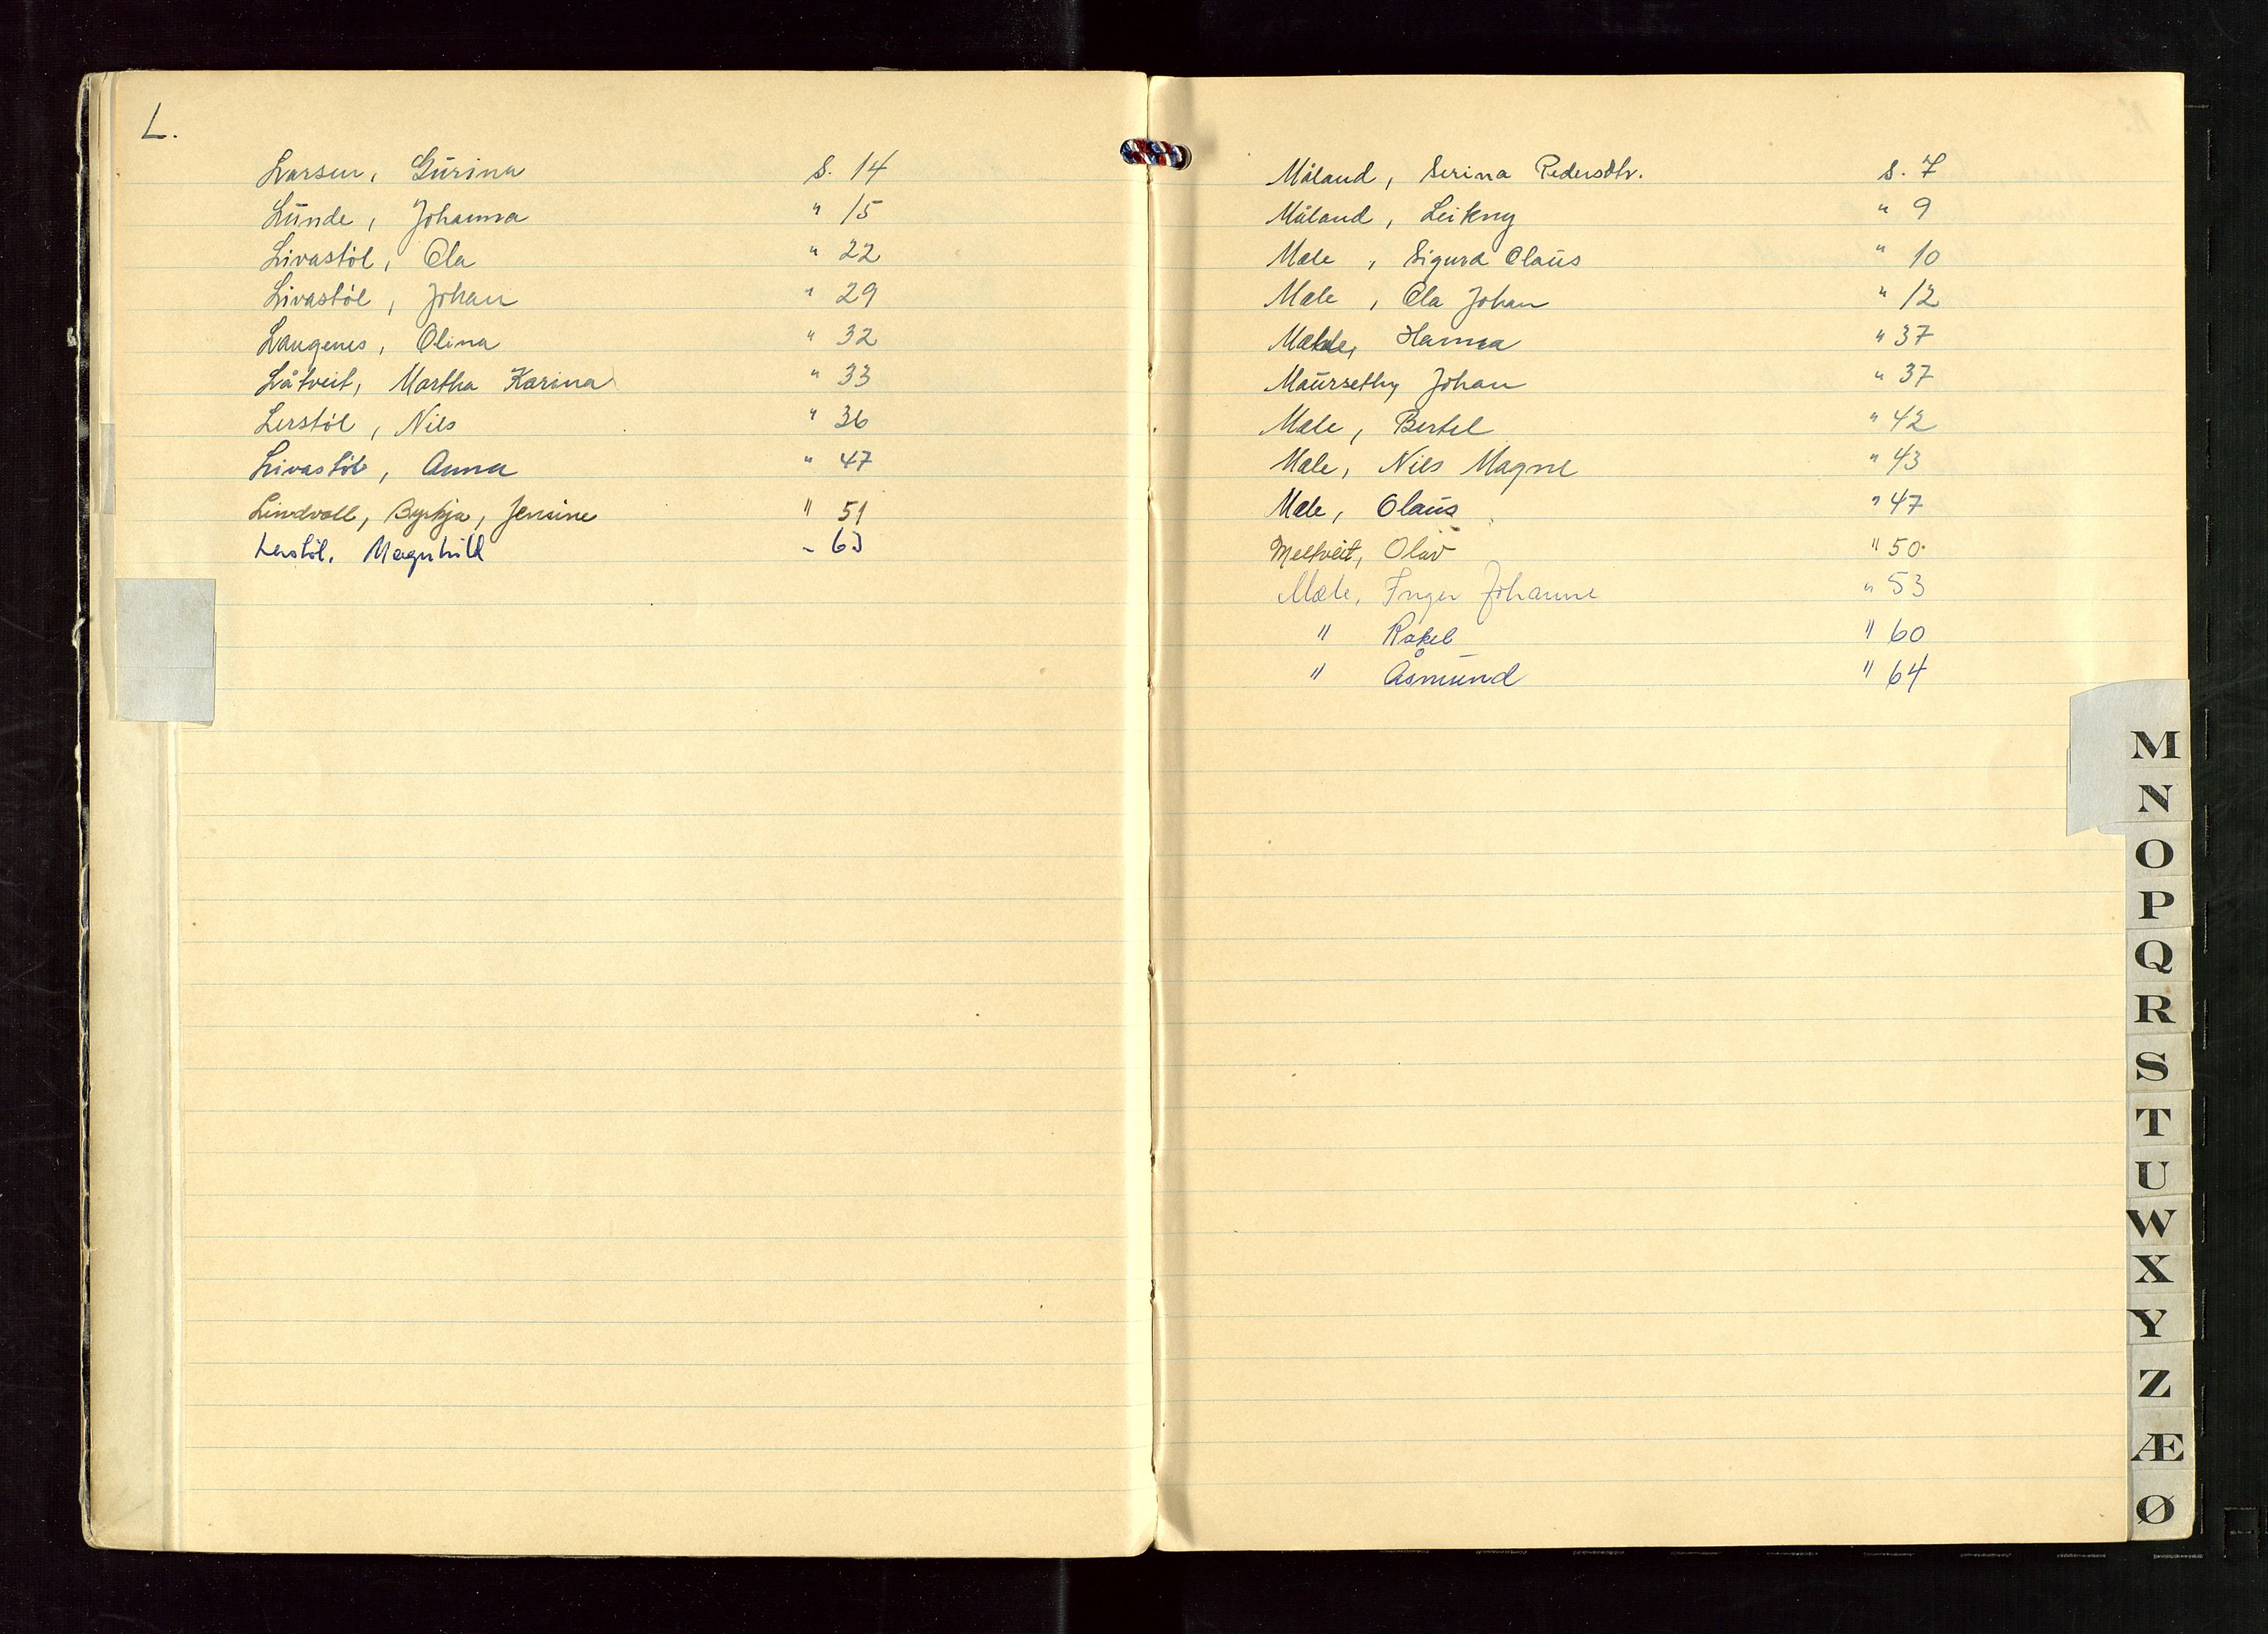 L.
Larsen, Gurina S. 14
Lunde, Johanna " 15
Livastøl, Ola " 22
Livastøl, Johan " 29
Laugenes, Olina " 32
Låtveit, Martha Karina " 33
Lerstøl, Nils " 36
Livastøl, Anna " 47
Lindvoll, Byrkja, Jensine " 51
Lerstøl, Magnhild - 63
Måland, Serina Pedersdtr. S. 7
Måland, Leikny " 9
Mæle, Sigurd Olaus " 10
Mæle, Ola Johan " 12
Hanna " 37
Johan " 37
Mæle, Bertel " 42
Mæle, Nils Magne " 43
Mæle, Olaus " 47
Meltveit, Olav " 50.
Mæle, Inger Johanne " 53
" Rakel " 60
" Åsmund " 64
M
N
O
P
Q
R
S
T
U
W
X
Y
Z
Æ
Ø